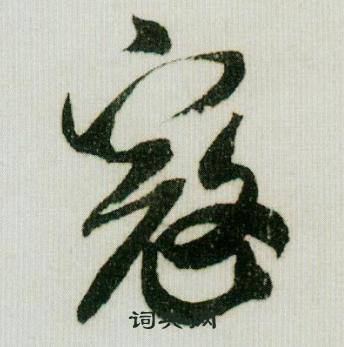 寇
词典网